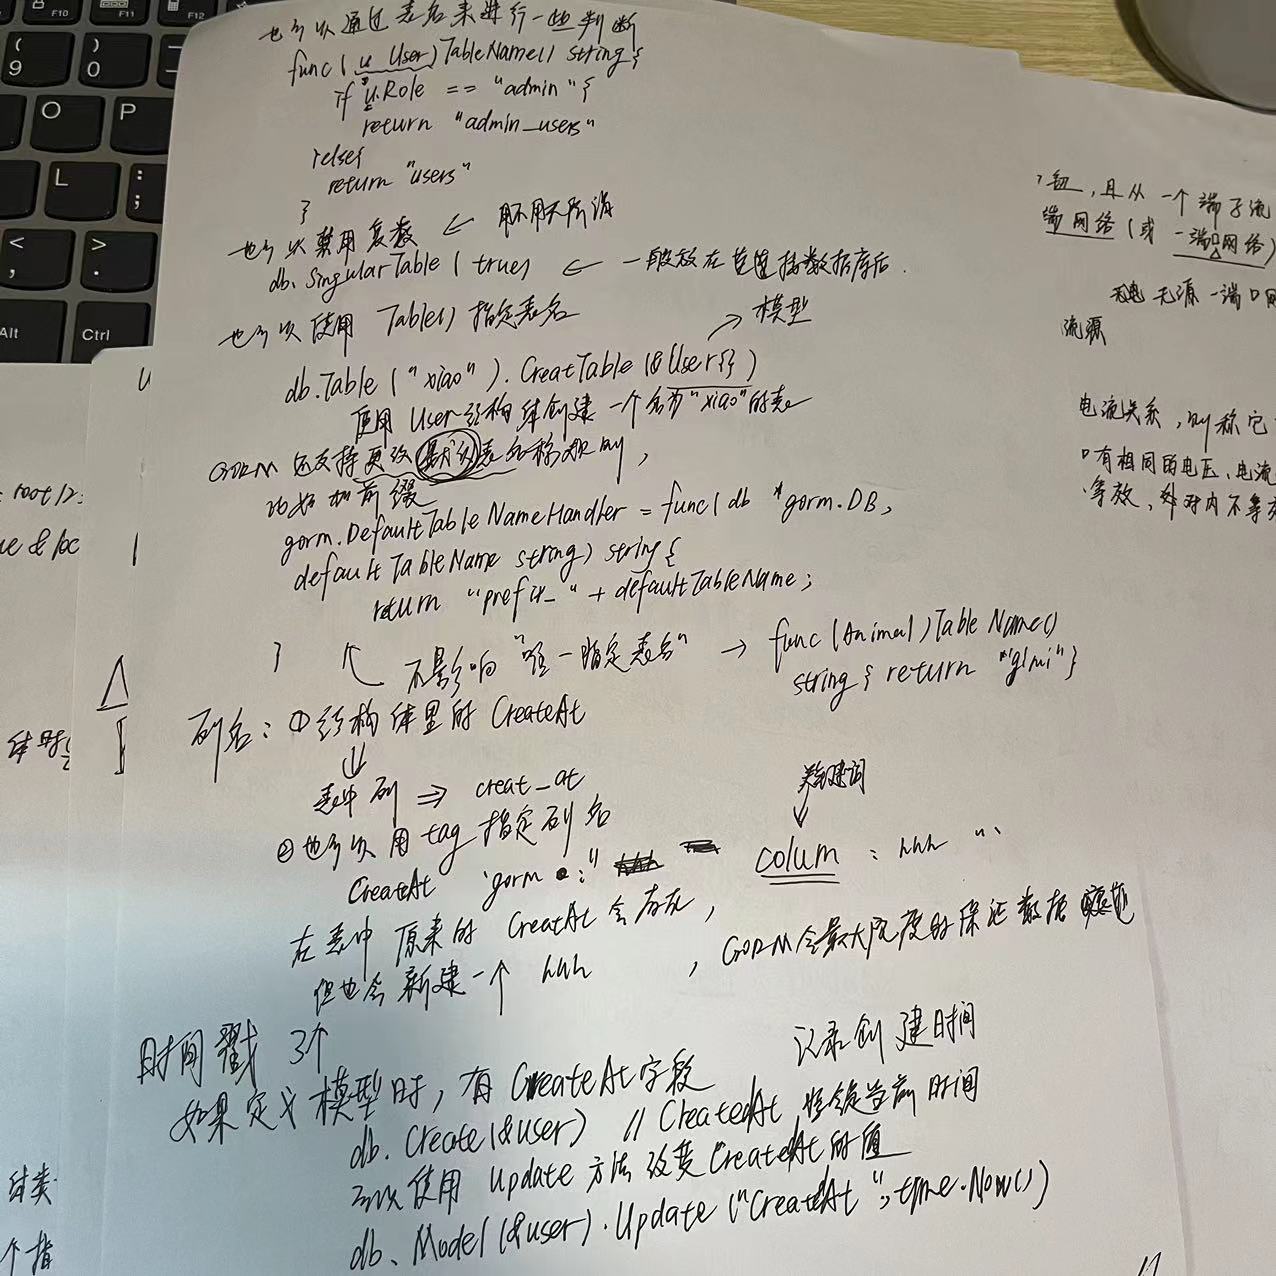 F10
F11
F12
(
9
)
0
O
P
L
:
;
<
,
>
.
Alt
Ctrl
也可以通过表名来进行一些判断
func (u User) TableName() string {
if u.Role == "admin" {
return "admin_users"
}else{
return "users"
}
也可以禁用复数 ←
db. SingularTable (true) ← 一般放在连接数据库后.
也可以使用 Table() 指定表名
模型
db.Table ("xiao"). CreatTable (&User{})
使用 User结构体创建一个名为"xiao"的表
GORM 还支持更改默认表名称规则,
比如加前缀
gorm.DefaultTableNameHandler = func( db *gorm.DB,
defaultTableName string) string {
return "prefix_" + defaultTableName;
}
不影响 "唯一指定表名" → func (Animal) TableName()
string { return "gimi" }
列名: ① 结构体里的 CreateAt
↓
表中列 ⇒ creat_at
关键词
② 也可以用 tag 指定列名
CreateAt `gorm:" colum : hhh "`
在表中原来的 CreatAt 会存在,
但也会新建一个 hhh , GORM会最大程度的保证数据
时间戳 3个
如果定义模型时, 有 CreateAt字段 记录创建时间
db. Create (&user) // CreatedAt 将会是当前时间
可以使用 Update 方法改变 CreateAt的值
db. Model (&user). Update ("CreateAt", time.Now())
root/2:
& loc
结类
个指
且从一个端子流
端网络 (或 一端口网络)
无源一端口网
流源
电流关系, 则称它
有相同的电压、电流
等效, 外对内不等效